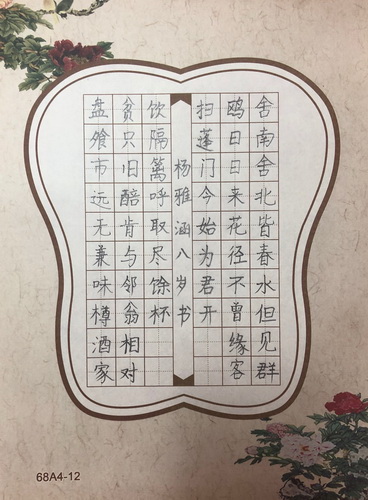 舍南舍北皆春水但见群
鸥日日来花径不曾缘客
扫蓬门今始为君开
盘飧市远无兼味樽酒家
贫只旧醅肯与邻翁相对
饮隔篱呼取尽馀杯
杨雅涵八岁书
68A4-12